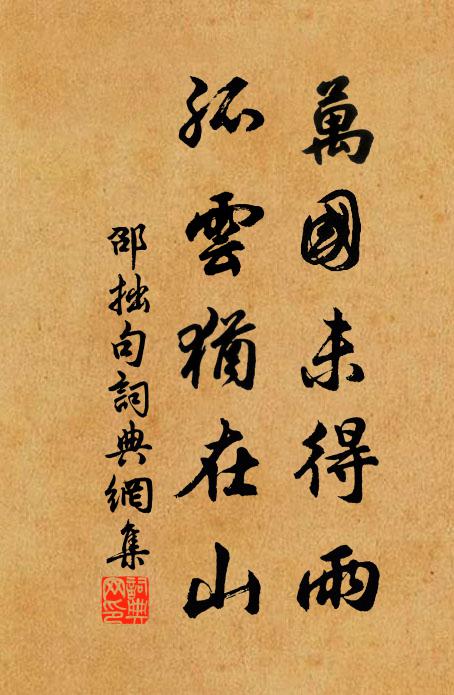 萬國未得雨
孤雲猶在山
邵拙句詞典網集
詞典
网印